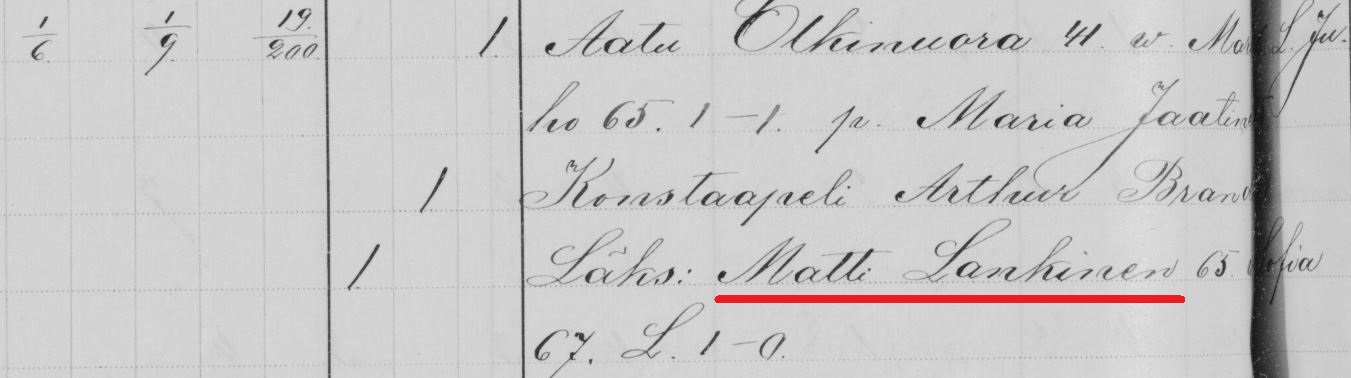 1/6 1/9 19/200 1 Aatu Olkinuora 41. w. Ma L. Ju-
ho 65. 1-1. p. Maria Jaatin
1 Konstaapeli Arthur Brand
1 Läks: Matti Lankinen 65 Sofia
67. L. 1-0.